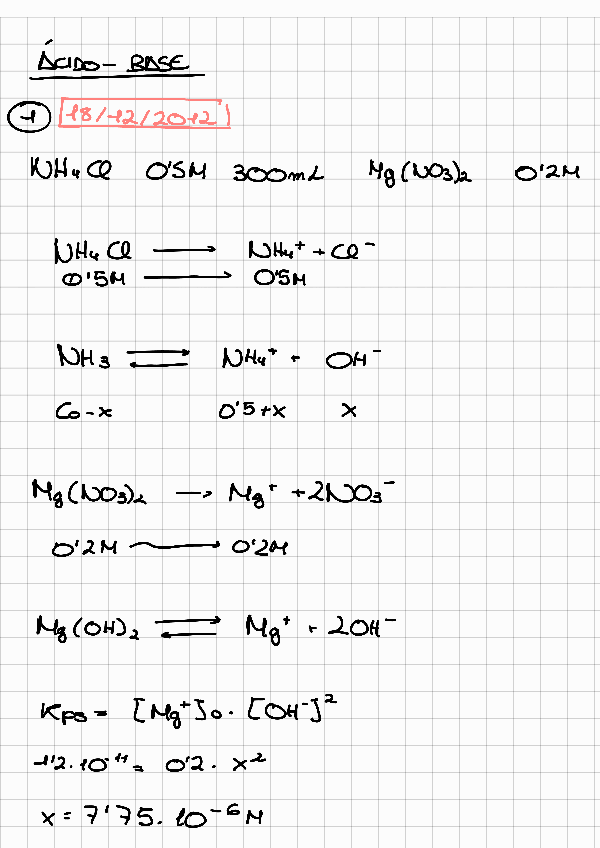 ÁCIDO - BASE
1 18/12/2012
NH4Cl 0'5M 300mL Mg(NO3)2 0'2M
NH4Cl ⟶ NH4⁺ + Cl⁻
0'5M ⟶ 0'5M
NH3 ⇌ NH4⁺ + OH⁻
Co-x 0'5+x x
Mg(NO3)2 ⟶ Mg⁺ + 2NO3⁻
0'2M ⟶ 0'2M
Mg(OH)2 ⇌ Mg⁺ + 2OH⁻
Kps = [Mg⁺]o · [OH⁻]²
1'2·10⁻¹¹ = 0'2 · x²
x = 7'75 · 10⁻⁶ M